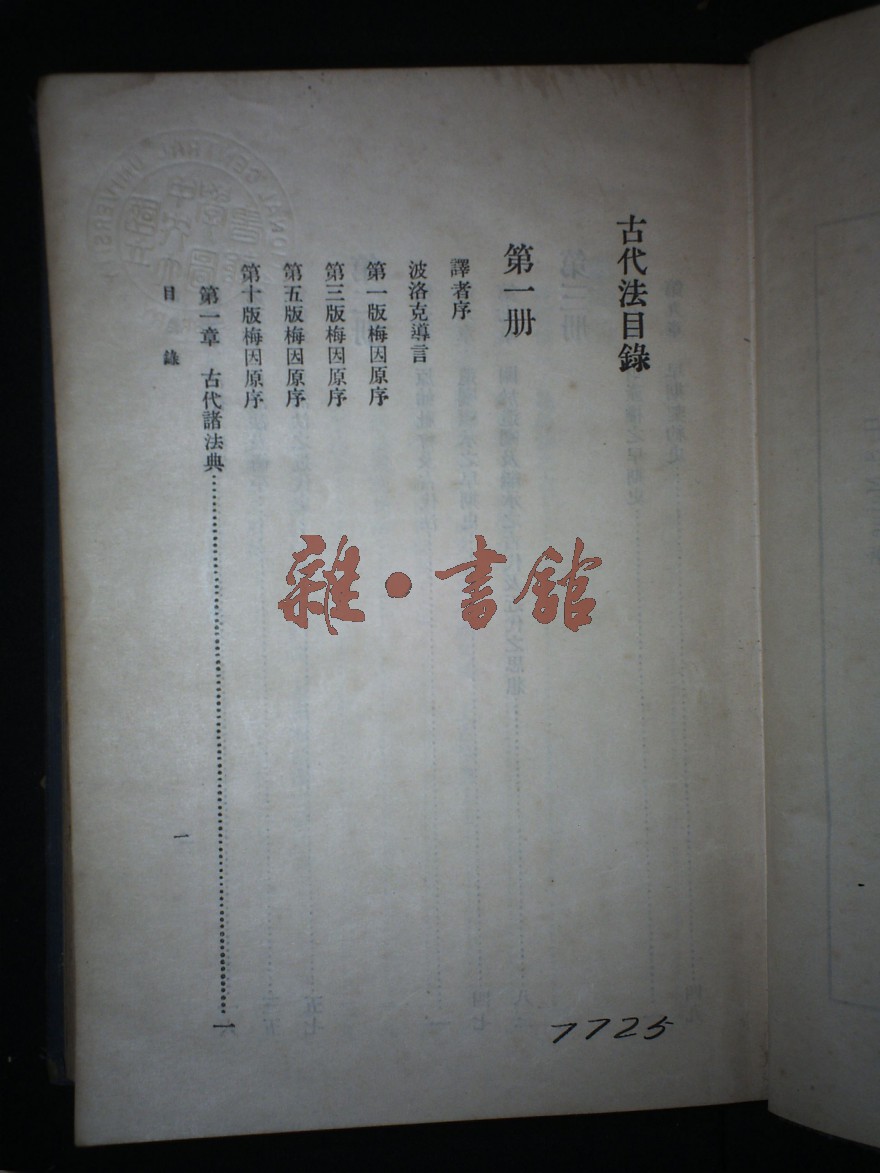 古代法目錄
第一册
譯者序
波洛克導言
第一版梅因原序
第三版梅因原序
第五版梅因原序
第十版梅因原序
第一章 古代諸法典……………………一
目錄
一
雜·書館
7725